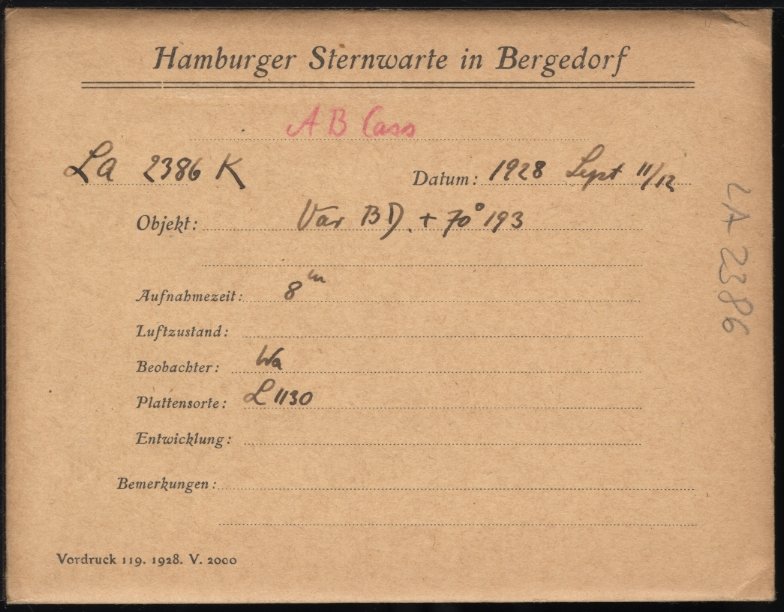 Hamburger Sternwarte in Bergedorf
AB Cass
La 2386 K
Datum: 1928 Sept 11/12
Objekt: Var BD. + 70° 193
Aufnahmezeit: 8m
Luftzustand:
Beobachter: Wa
Plattensorte: L 1130
Entwicklung:
Bemerkungen:
Vordruck 119. 1928. V. 2000
LA 2386